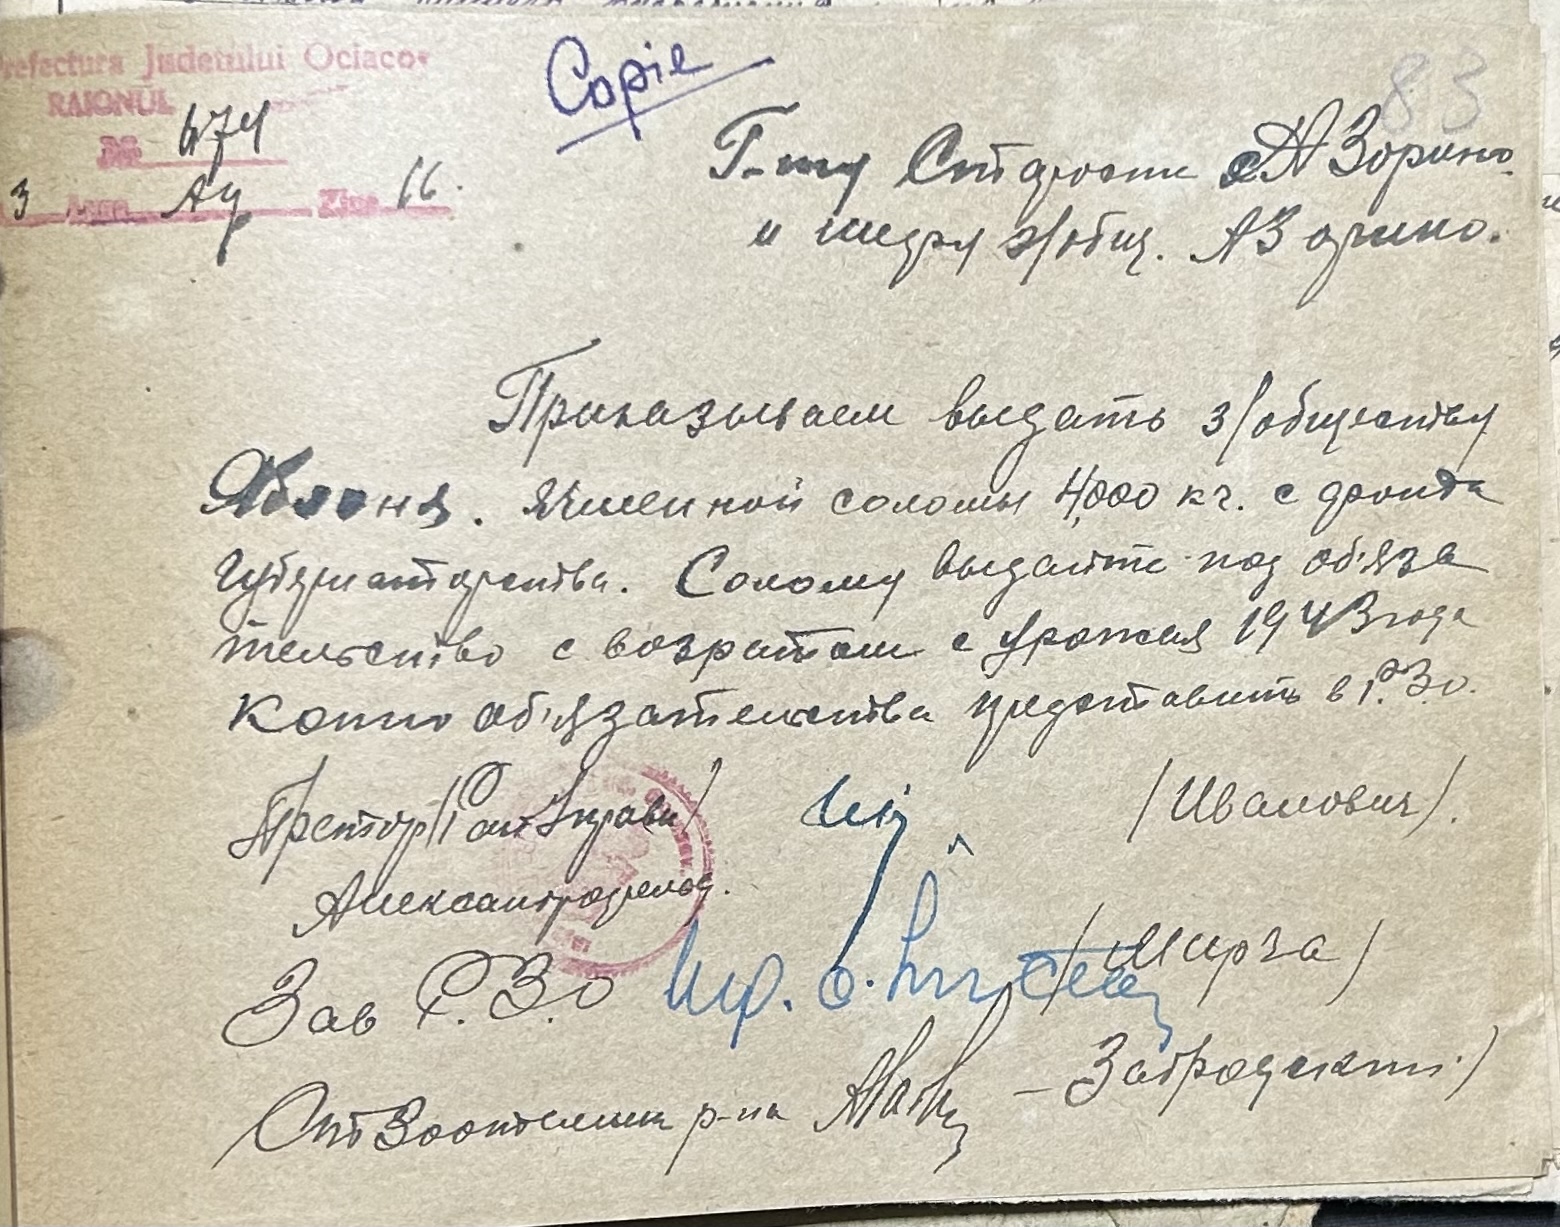 Prefectura Judetului Ociacov
RAIONUL
№ 674
3 Luna Ziua 16.
Copie
83
Г-ну Старости с АЗорино
и шефу з/общ. АЗорино.
Приказываем выдать з/обществу
Яблоня. Ячменной соломы 4,000 кг. с фонда
Губернаторства. Солому выдайте под об'яза
тельство с возвратом с урожая 1943 года
Копию об'язательства представить в Р.З.О.
Претор/Рай Управы/ /Иванович/.
Александрфельд.
Зав Р.З.О /Мирза/
Ст Зоотехник р-на - Забродский/